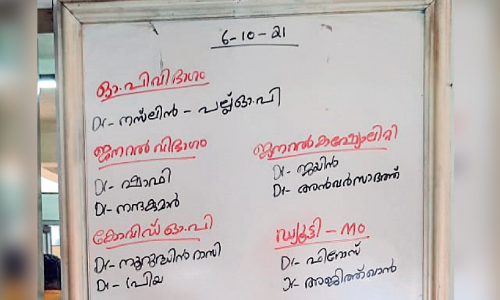 6-10-21
ഒ.പി വിഭാഗം
Dr- നസ്‌ലിൻ - പല്ല് ഒ.പി
ജനറൽ വിഭാഗം
Dr- ഷാഫി
Dr- നന്ദകുമാർ
കോവിഡ് ഒ.പി
Dr- നൂറുദ്ധീൻ റാസി
Dr- പ്രിയ
ജനറൽ കാഷ്വാലിറ്റി
Dr- ജയിൻ
Dr- അൻവർ സാദത്ത്
ഡ്യൂട്ടി - MO
Dr- ഫിറോസ്
Dr- അജിത്ത്ഖാൻ